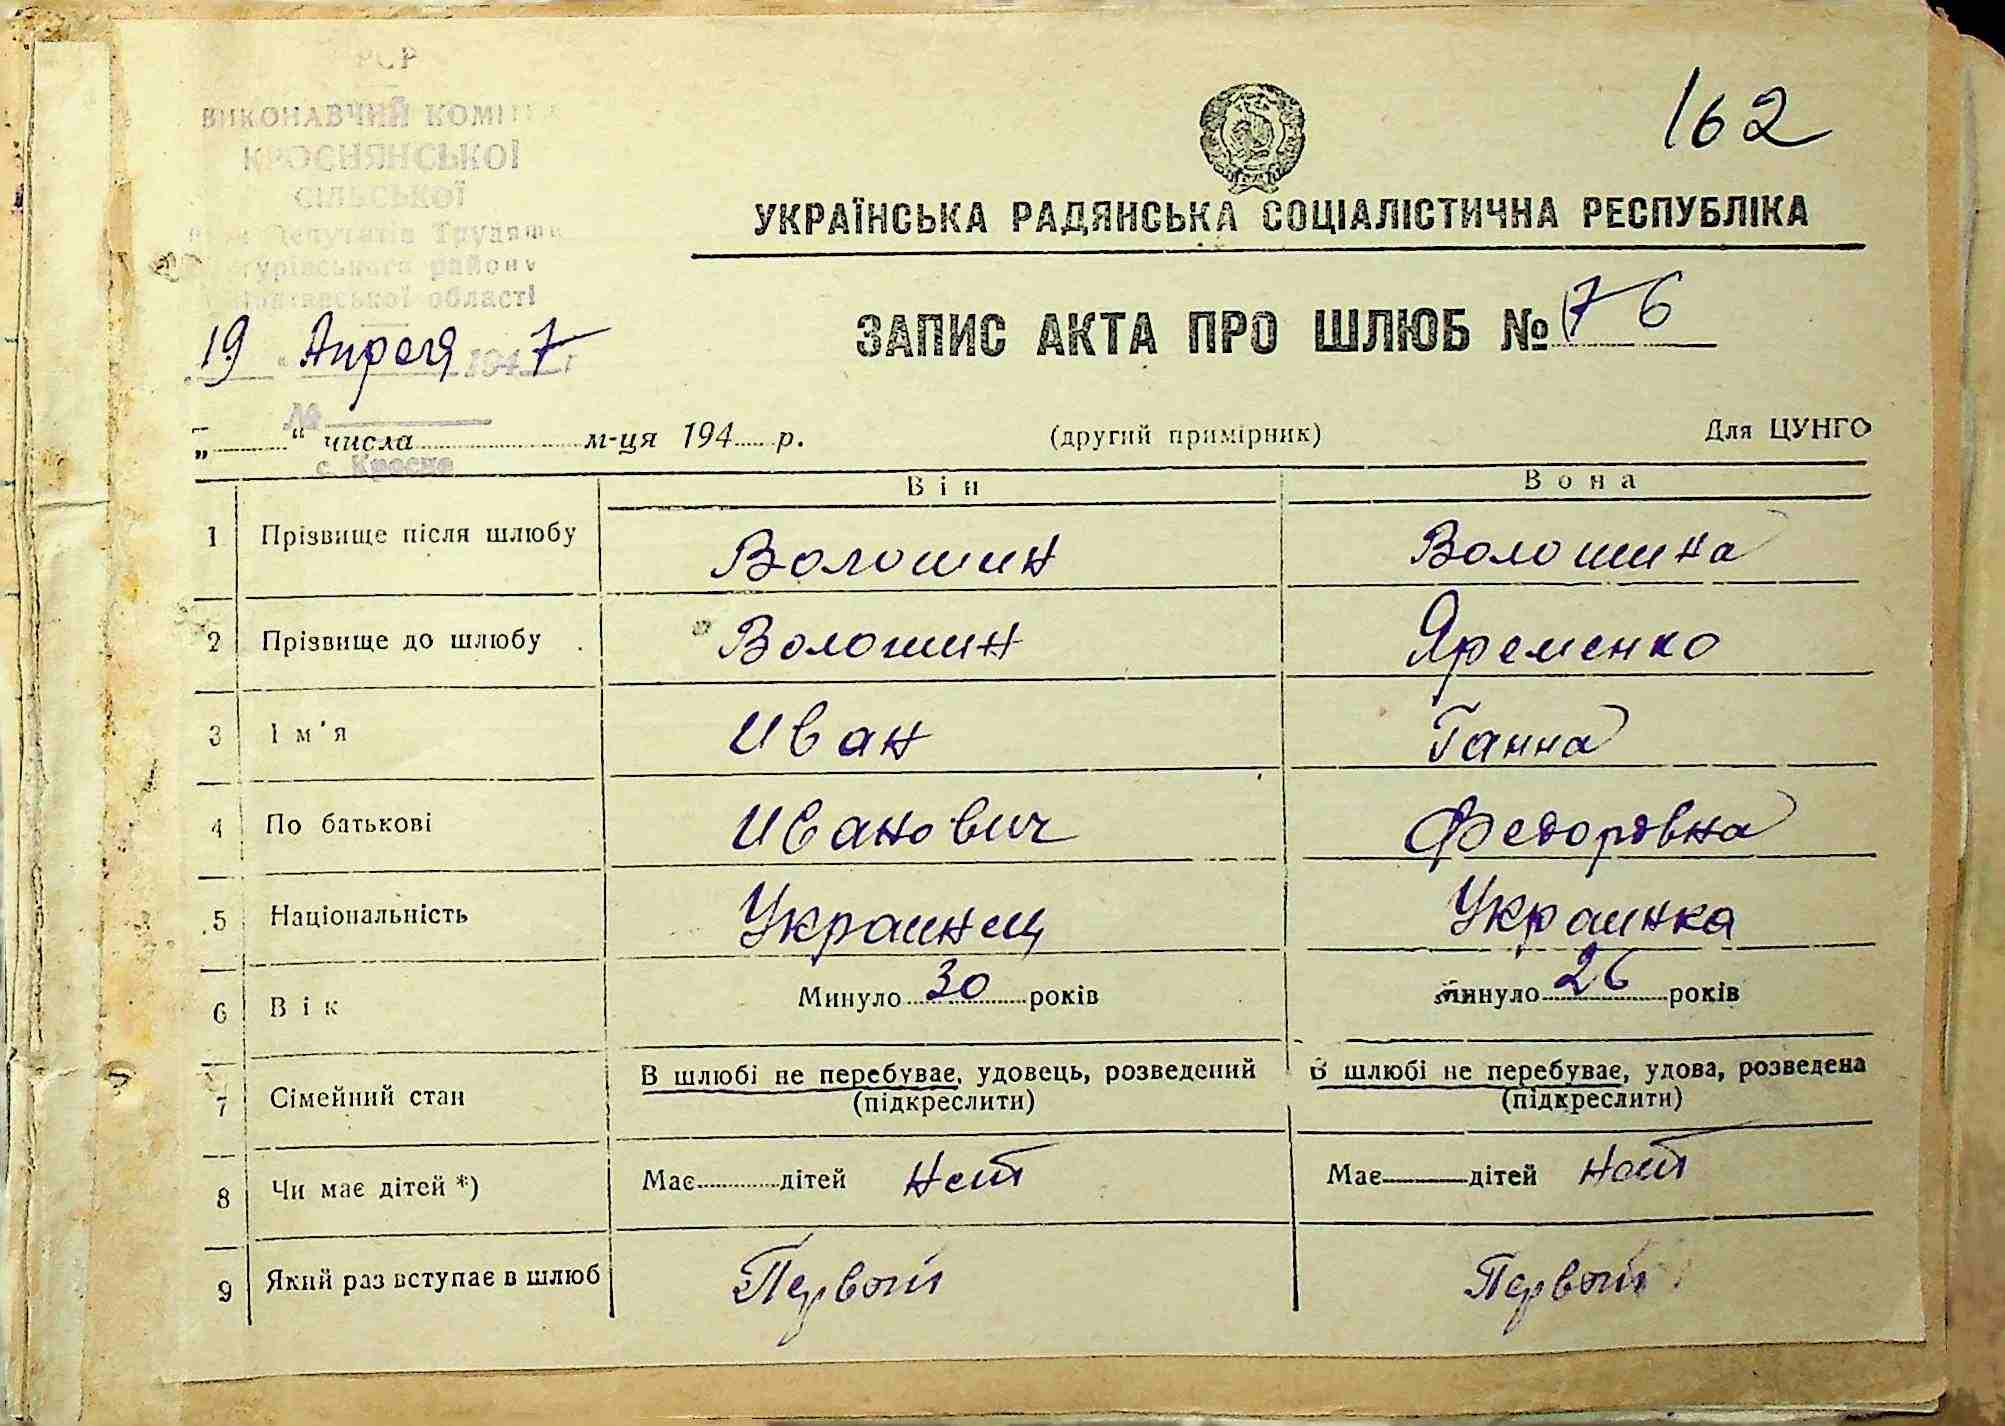 РСР
ВИКОНАВЧИЙ КОМІТЕ
КРОСНЯНСЬКОЇ
СІЛЬСЬКОЇ
Депутатів Трудящи
району
області
19 Апреля 1947 г
№
с. Красне
162
УКРАЇНСЬКА РАДЯНСЬКА СОЦІАЛІСТИЧНА РЕСПУБЛІКА
ЗАПИС АКТА ПРО ШЛЮБ № 76
„ “ числа м-ця 194 р. (другий примірник) Для ЦУНГО
Він Вона
1 Прізвище після шлюбу Волошин Волошина
2 Прізвище до шлюбу Волошин Яременко
3 Ім'я Иван Ганна
4 По батькові Иванович Федоровна
5 Національність Украинец Украинка
6 Вік Минуло 30 років Минуло 26 років
7 Сімейний стан В шлюбі не перебуває, удовець, розведений В шлюбі не перебуває, удова, розведена
(підкреслити) (підкреслити)
8 Чи має дітей *) Має дітей Нет Має дітей Нет
9 Який раз вступає в шлюб Первый Первый